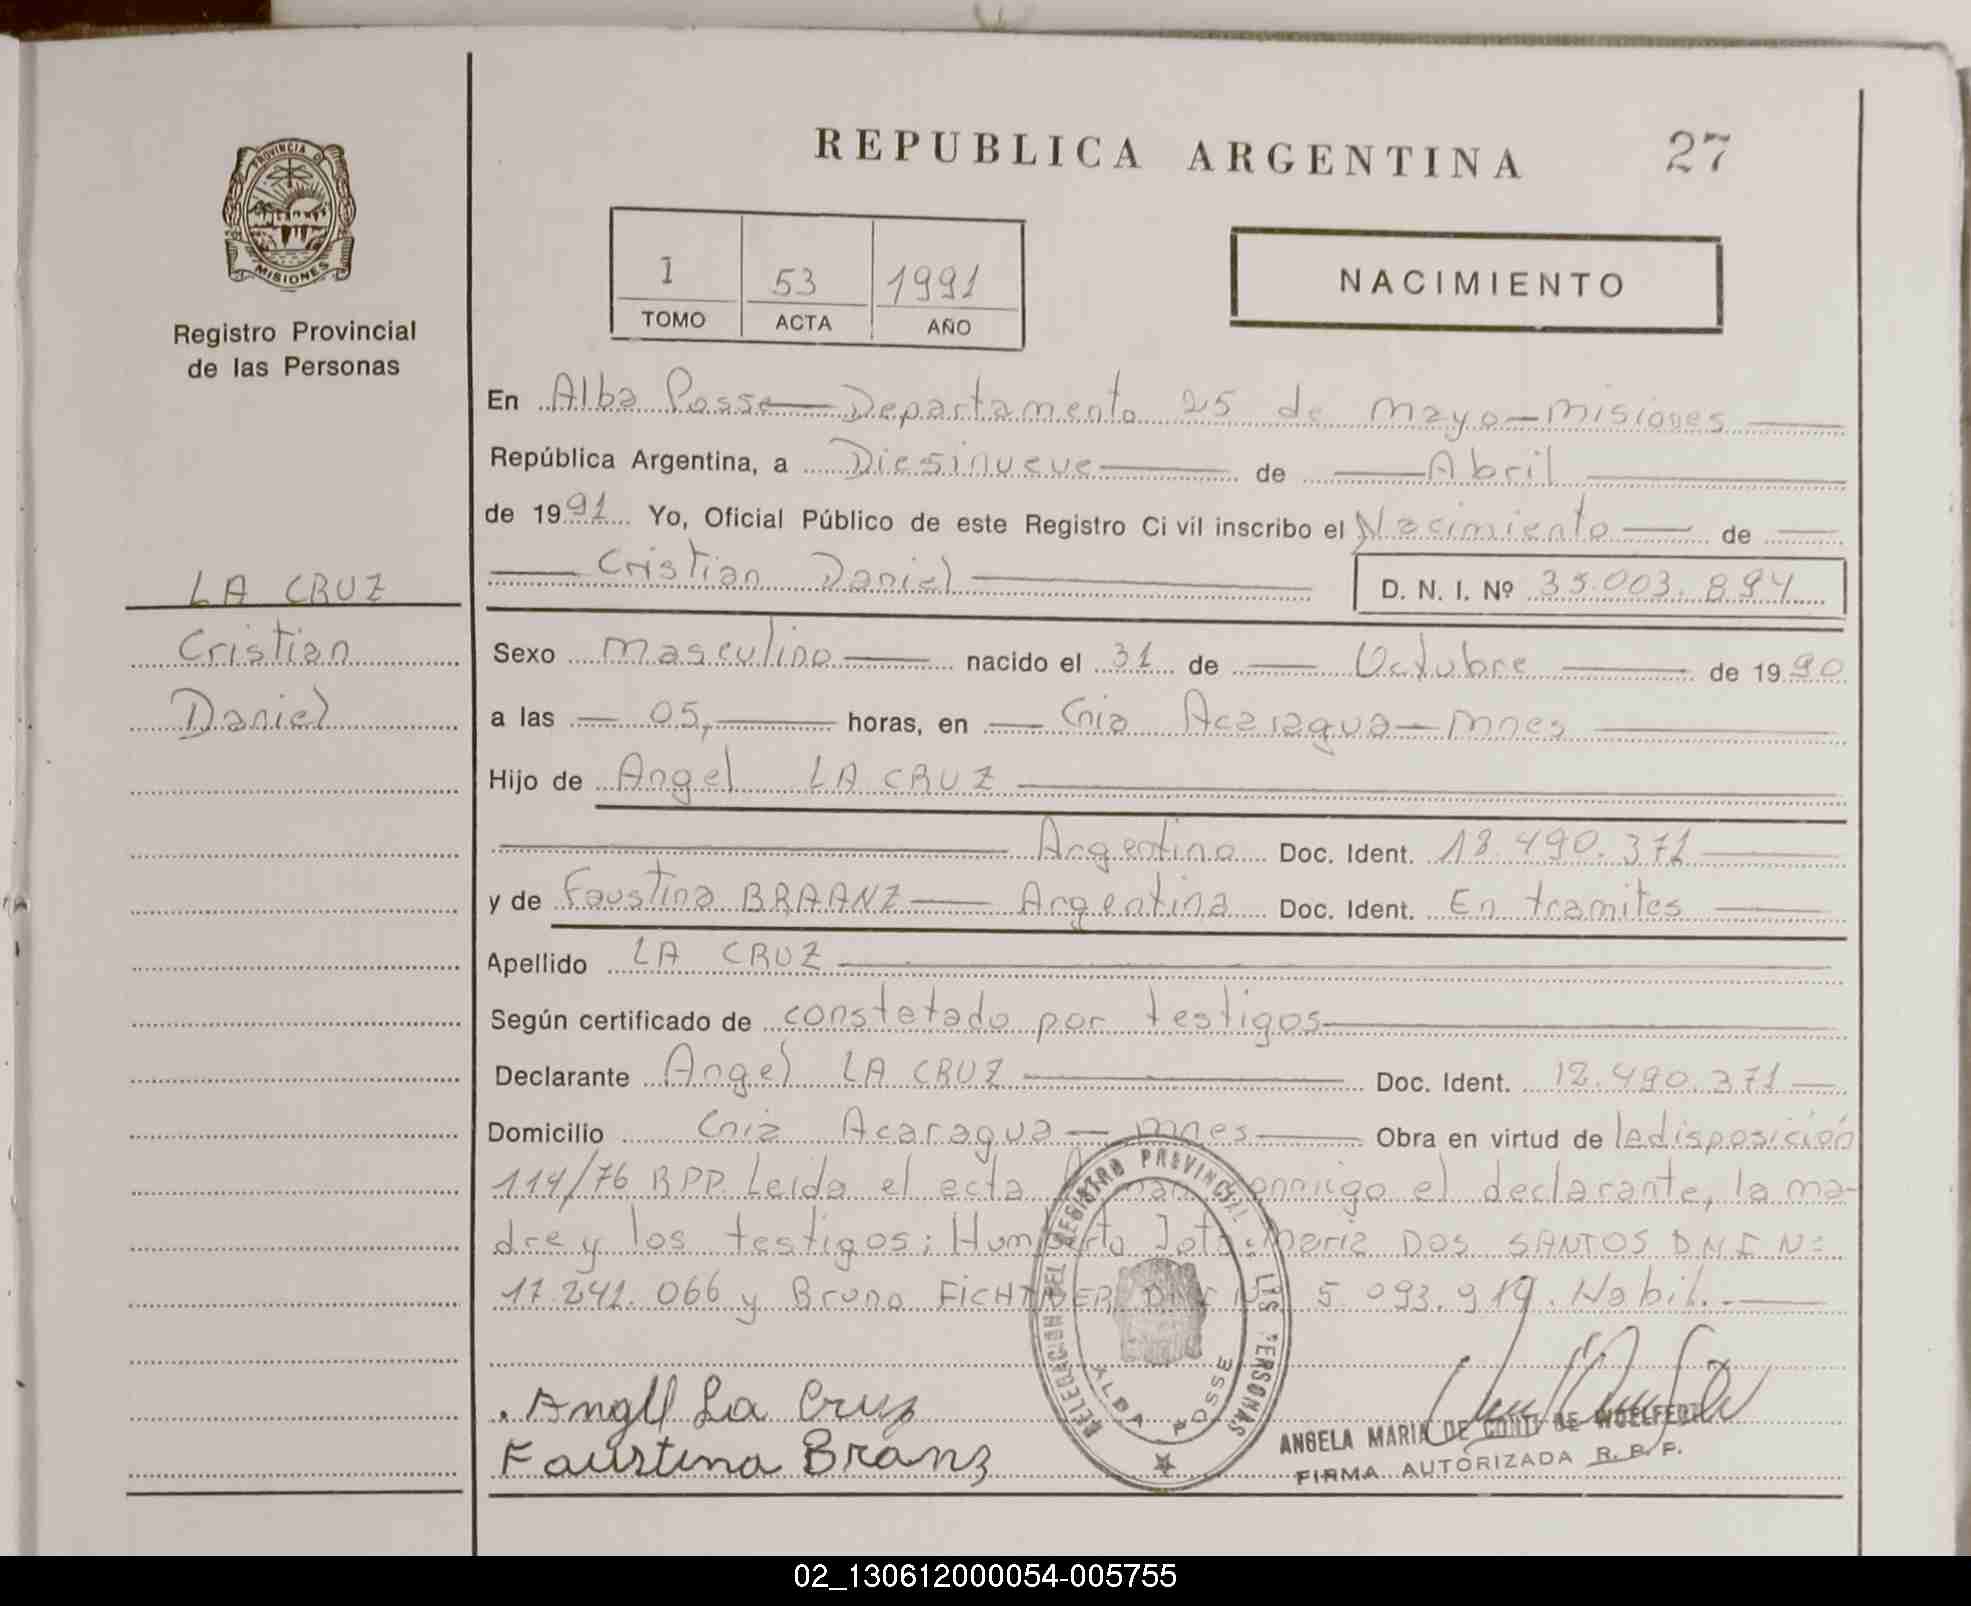 REPUBLICA ARGENTINA
27
PROVINCIA DE
MISIONES
Registro Provincial
de las Personas
I 53 1991
TOMO ACTA AÑO
NACIMIENTO
En Alba Posse — Departamento 25 de Mayo — Misiones
República Argentina, a Diesinueve de Abril
de 1991 Yo, Oficial Público de este Registro Civil inscribo el Nacimiento de
Cristian Daniel D. N. I. Nº 35.003.894
LA CRUZ
Cristian
Daniel
Sexo Masculino nacido el 31 de Octubre de 1990
a las 05, horas, en Cnia Acaragua — Mnes
Hijo de Angel LA CRUZ
Argentino Doc. Ident. .490.371
y de Faustina BRAANZ — Argentina Doc. Ident. En tramites
Apellido LA CRUZ
Según certificado de constatado por testigos
Declarante Angel LA CRUZ Doc. Ident. .490.371
Domicilio Cnia Acaragua — Mnes Obra en virtud de la disposición
114/76 RPP. Leida el acta conmigo el declarante, la ma-
dre y los testigos; Humberto Maria DOS SANTOS D.N.I Nº
17.241.066 y Bruno FICHTNER D.N.I Nº 5.093.919. Habil.
Angel La Cruz
Faustina Branz
DELEGACION DEL REGISTRO PROVINCIAL DE LAS PERSONAS
ALBA POSSE
ANGELA MARIA DE CONTI DE WOELFERT
FIRMA AUTORIZADA R. P. P.
02_130612000054-005755